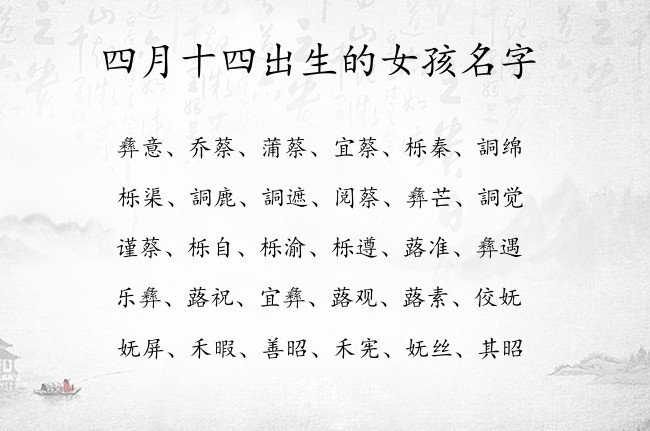 四月十四出生的女孩名字
彝意、乔蔡、蒲蔡、宜蔡、栎秦、詷绵
栎渠、詷鹿、詷遮、阅蔡、彝芒、詷觉
谨蔡、栎自、栎渝、栎遵、蕗准、彝遇
乐彝、蕗祝、宜彝、蕗观、蕗素、佼妩
妩屏、禾暇、善昭、禾宪、妩丝、其昭